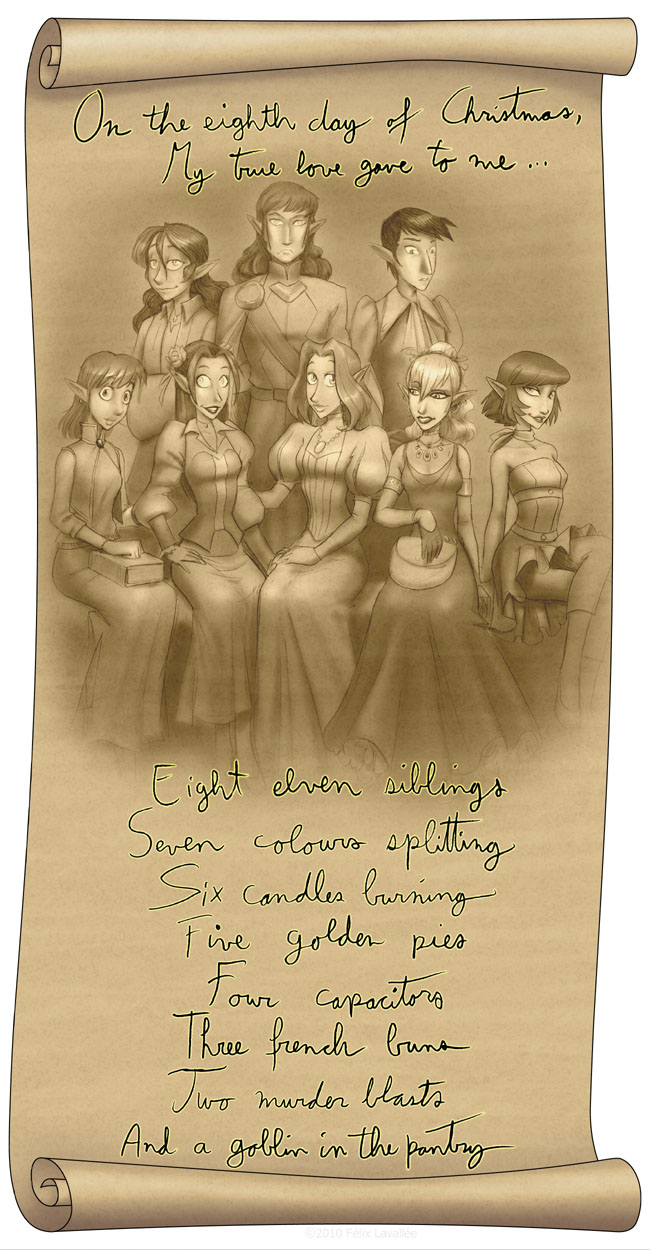 On the eighth day of Christmas,
My true love gave to me ...
Eight elven siblings
Seven colours splitting
Six candles burning
Five golden pies
Four capacitors
Three french buns
Two murder blasts
And a goblin in the pantry
©2010 Felix Lavallée